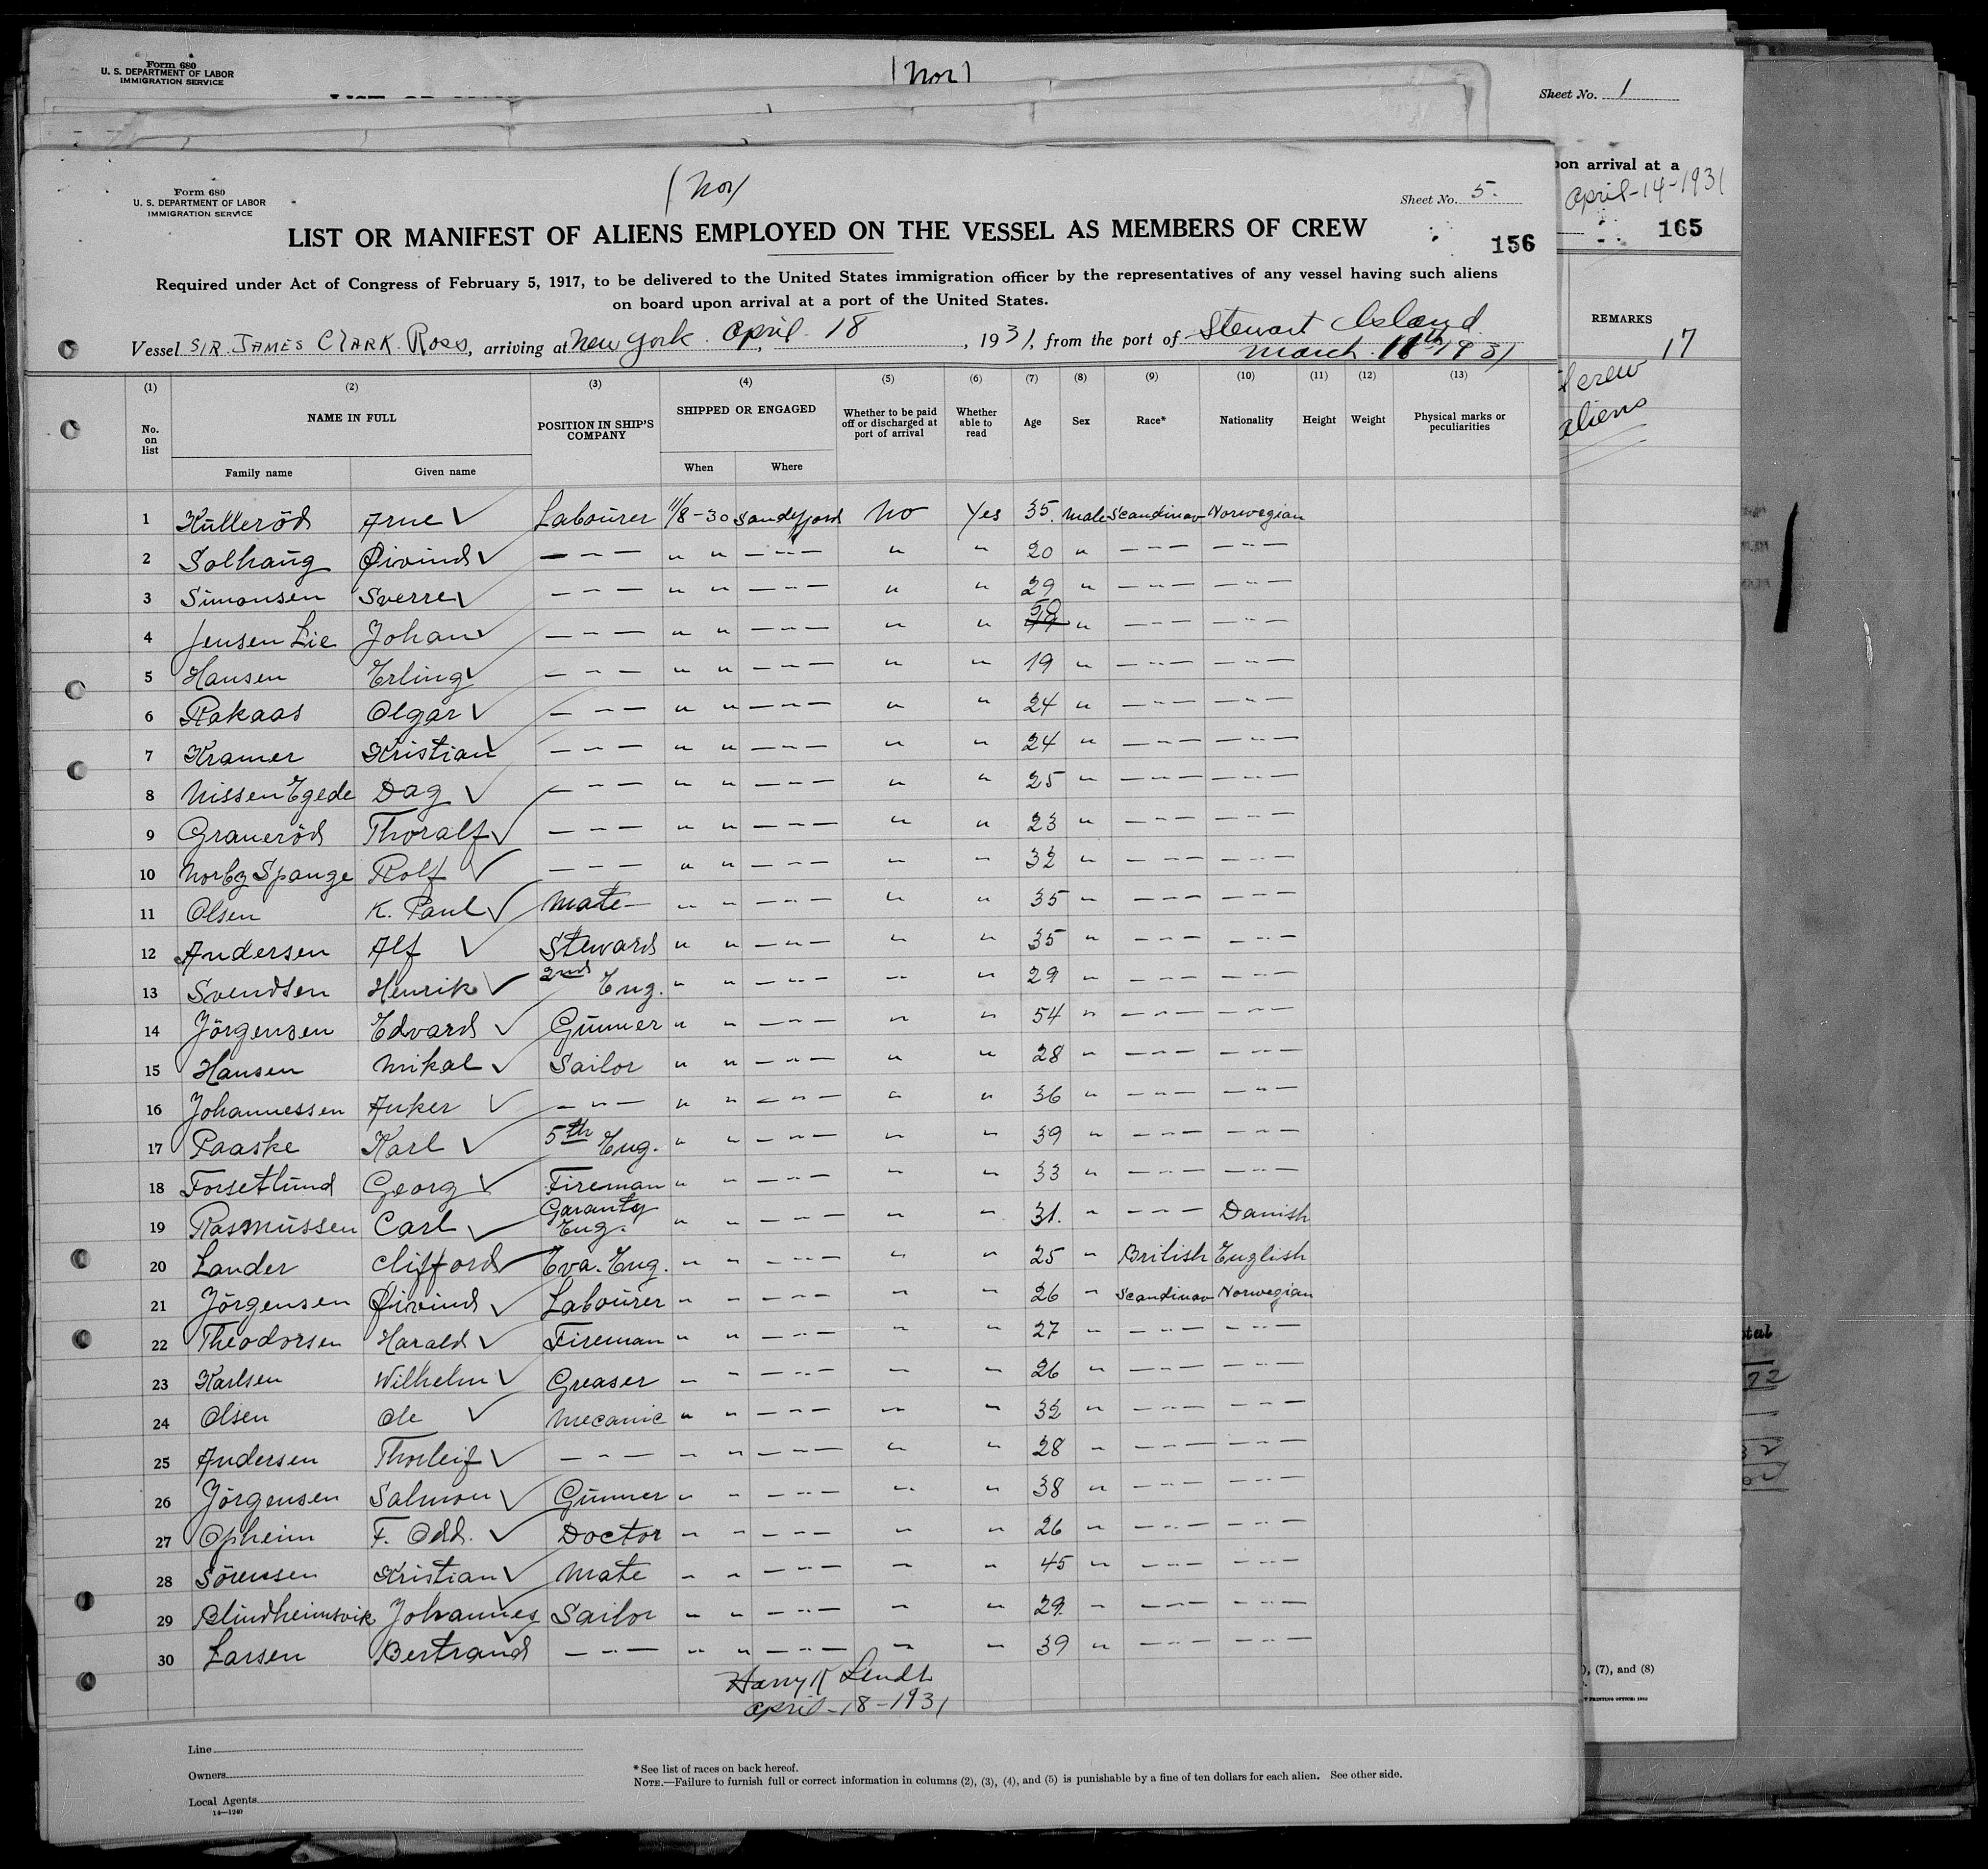 Form 680
U. S. DEPARTMENT OF LABOR
IMMIGRATION SERVICE
(Nor)
Sheet No. 1
pon arrival at a
April-14-1931
165
REMARKS
17
crew
aliens
Form 680
U. S. DEPARTMENT OF LABOR
IMMIGRATION SERVICE
(Nor)
Sheet No. 5.
LIST OR MANIFEST OF ALIENS EMPLOYED ON THE VESSEL AS MEMBERS OF CREW
156
Required under Act of Congress of February 5, 1917, to be delivered to the United States immigration officer by the representatives of any vessel having such aliens
on board upon arrival at a port of the United States.
Vessel SIR JAMES CLARK ROSS, arriving at New York. April 18, 1931, from the port of Stewart Island
March 11th 1931
(1) (2) (3) (4) (5) (6) (7) (8) (9) (10) (11) (12) (13)
No. on list NAME IN FULL POSITION IN SHIP'S COMPANY SHIPPED OR ENGAGED Whether to be paid off or discharged at port of arrival Whether able to read Age Sex Race* Nationality Height Weight Physical marks or peculiarities
Family name Given name When Where
1 Kulleröd Arne ✓ Labourer 11/8-30 Sandefjord No Yes 35. Male Scandinav Norwegian
2 Solhaug Øivind ✓ — " — " " — " — " " 20 " — " — — " —
3 Simonsen Sverre ✓ — " — " " — " — " " 29 " — " — — " —
4 Jensen Lie Johan ✓ — " — " " — " — " " 50 " — " — — " —
5 Hansen Erling ✓ — " — " " — " — " " 19 " — " — — " —
6 Rakaas Olgar ✓ — " — " " — " — " " 24 " — " — — " —
7 Kramer Kristian ✓ — " — " " — " — " " 24 " — " — — " —
8 Nissen Egede Dag ✓ — " — " " — " — " " 25 " — " — — " —
9 Graneröd Thoralf ✓ — " — " " — " — " " 23 " — " — — " —
10 Norby Spange Rolf ✓ — " — " " — " — " " 32 " — " — — " —
11 Olsen K. Paul ✓ Mate " " — " — " " 35 " — " — — " —
12 Andersen Alf ✓ Steward " " — " — " " 35 " — " — — " —
13 Svendsen Henrik ✓ 2nd Eng. " " — " — " " 29 " — " — — " —
14 Jörgensen Edvard ✓ Gunner " " — " — " " 54 " — " — — " —
15 Hansen Mikal ✓ Sailor " " — " — " " 28 " — " — — " —
16 Johannessen Anker ✓ — " — " " — " — " " 36 " — " — — " —
17 Paaske Karl ✓ 5th Eng. " " — " — " " 39 " — " — — " —
18 Forsetlund Georg ✓ Fireman " " — " — " " 33 " — " — — " —
19 Rasmussen Carl ✓ Garanty Eng. " " — " — " " 31. " — " — Danish
20 Lander Clifford ✓ Eva. Eng. " " — " — " " 25 " British English
21 Jörgensen Øivind ✓ Labourer " " — " — " " 26 " Scandinav Norwegian
22 Theodorsen Harald ✓ Fireman " " — " — " " 27 " — " — — " —
23 Karlsen Wilhelm ✓ Greaser " " — " — " " 26 " — " — — " —
24 Olsen Ole ✓ Mecanic " " — " — " " 32 " — " — — " —
25 Andersen Thorleif ✓ — " — " " — " — " " 28 " — " — — " —
26 Jörgensen Salmon ✓ Gunner " " — " — " " 38 " — " — — " —
27 Opheim F. Odd. ✓ Doctor " " — " — " " 26 " — " — — " —
28 Sörensen Kristian ✓ Mate " " — " — " " 45 " — " — — " —
29 Blindheimsvik Johannes ✓ Sailor " " — " — " " 29. " — " — — " —
30 Larsen Bertrand ✓ — " — " " — " — " " 39 " — " — — " —
Harry K Lendt
April-18-1931
Line
Owners
Local Agents
14—1240
*See list of races on back hereof.
NOTE.—Failure to furnish full or correct information in columns (2), (3), (4), and (5) is punishable by a fine of ten dollars for each alien. See other side.
), (7), and (8)